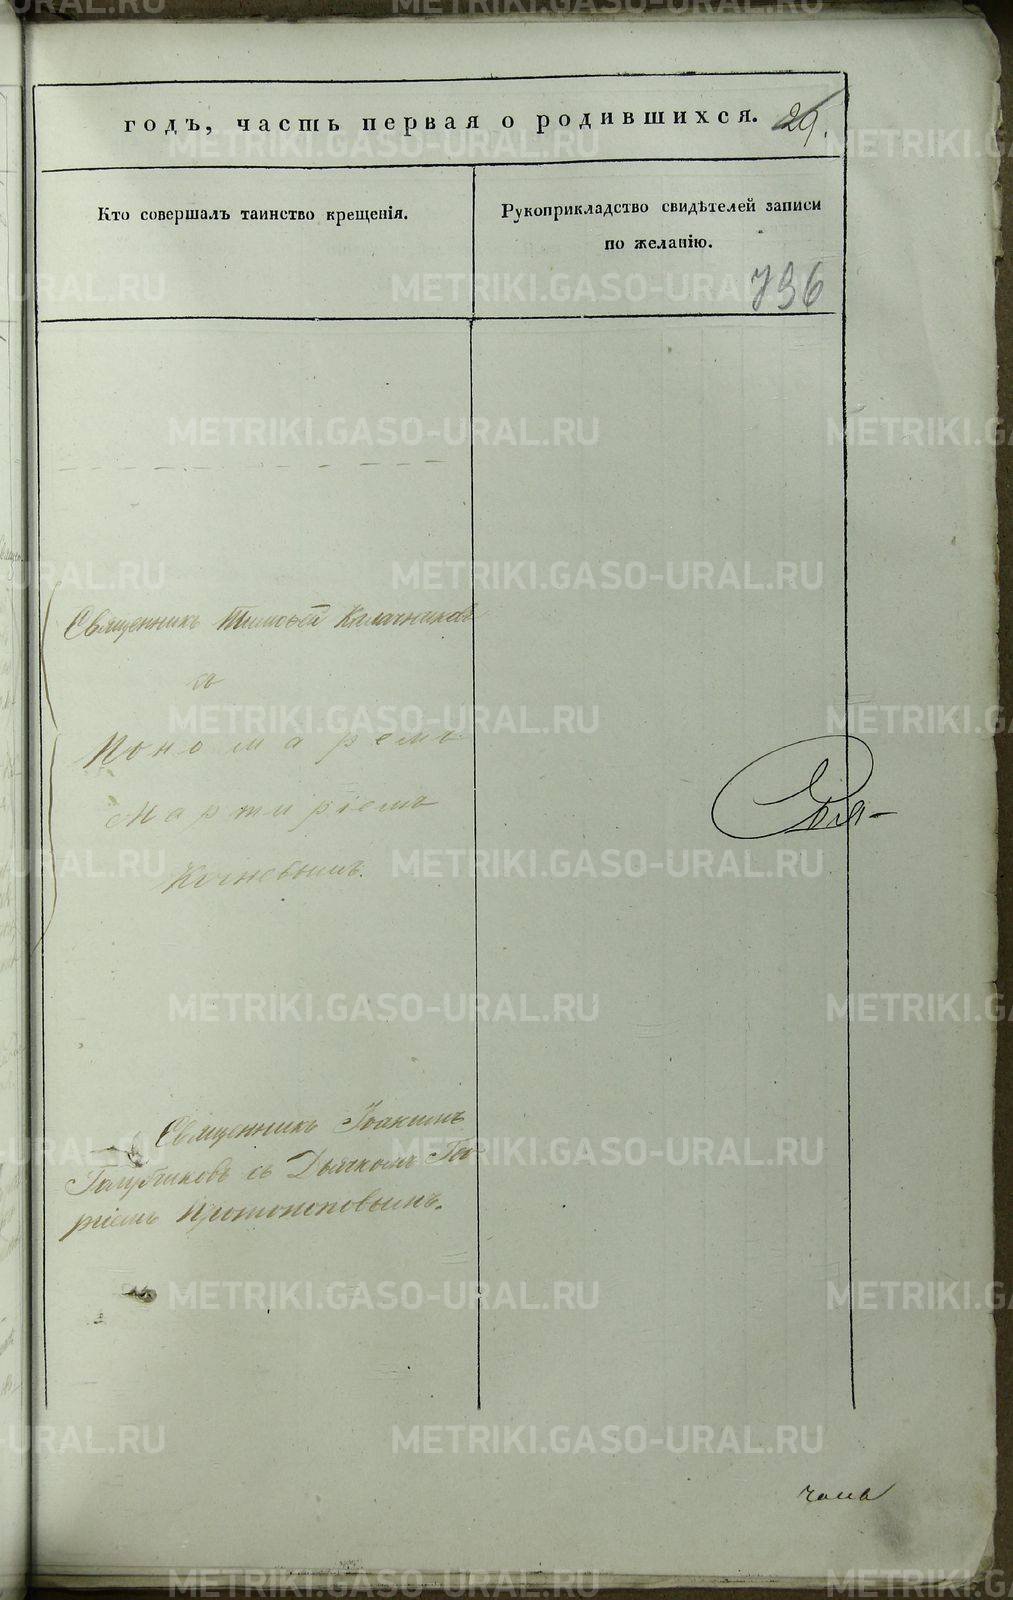 годъ, часть первая о родившихся. 29.
Кто совершалъ таинство крещенія.
Рукоприкладство свидѣтелей записи
по желанію.
736
Священникъ Тимоѳей Калачниковъ
съ
Пономаремъ
Мартиріемъ
Кочневымъ.
Священникъ Іоакимъ
съ Дьячкомъ Геор
гіемъ Протопоповымъ.
METRIKI.GASO-URAL.RU